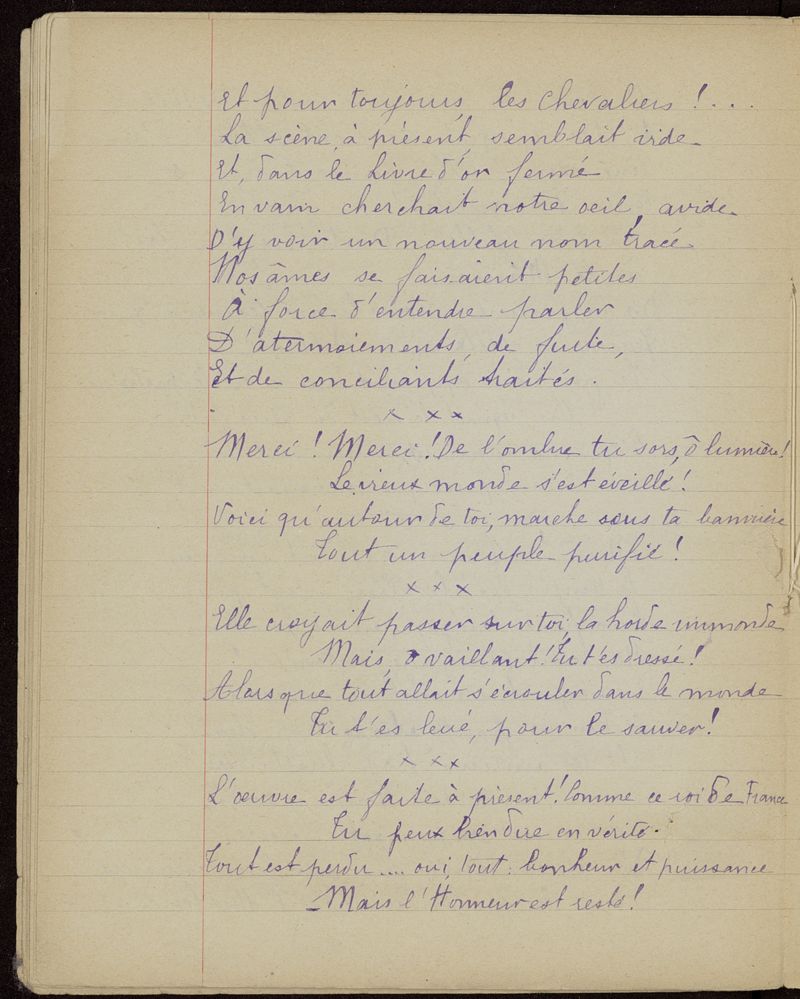 Et pour toujours, les chevaliers !...
La scène, à présent, semblait vide
Et, dans le Livre d'or fermé
En vain cherchait notre oeil, avide
D'y voir un nouveau nom tracé
Nos âmes se faisaient petites
À force d'entendre parler
D'atermoiements, de fuite,
Et de conciliants traités.
x x x
Merci ! Merci ! De l'ombre tu sors, ô lumière !
Le vieux monde s'est éveillé !
Voici qu'autour de toi, marche sous ta bannière
Tout un peuple purifié !
x x x
Elle croyait passer sur toi, la horde immonde
Mais, ô vaillant ! Tu t'es dressé !
Alors que tout allait s'écrouler dans le monde
Tu t'es levé, pour le sauver !
x x x
L'oeuvre est faite à présent ! Comme ce roi de France
Tu peux bien dire en vérité.
Tout est perdu .... oui, tout : bonheur et puissance
Mais l'Honneur est resté !